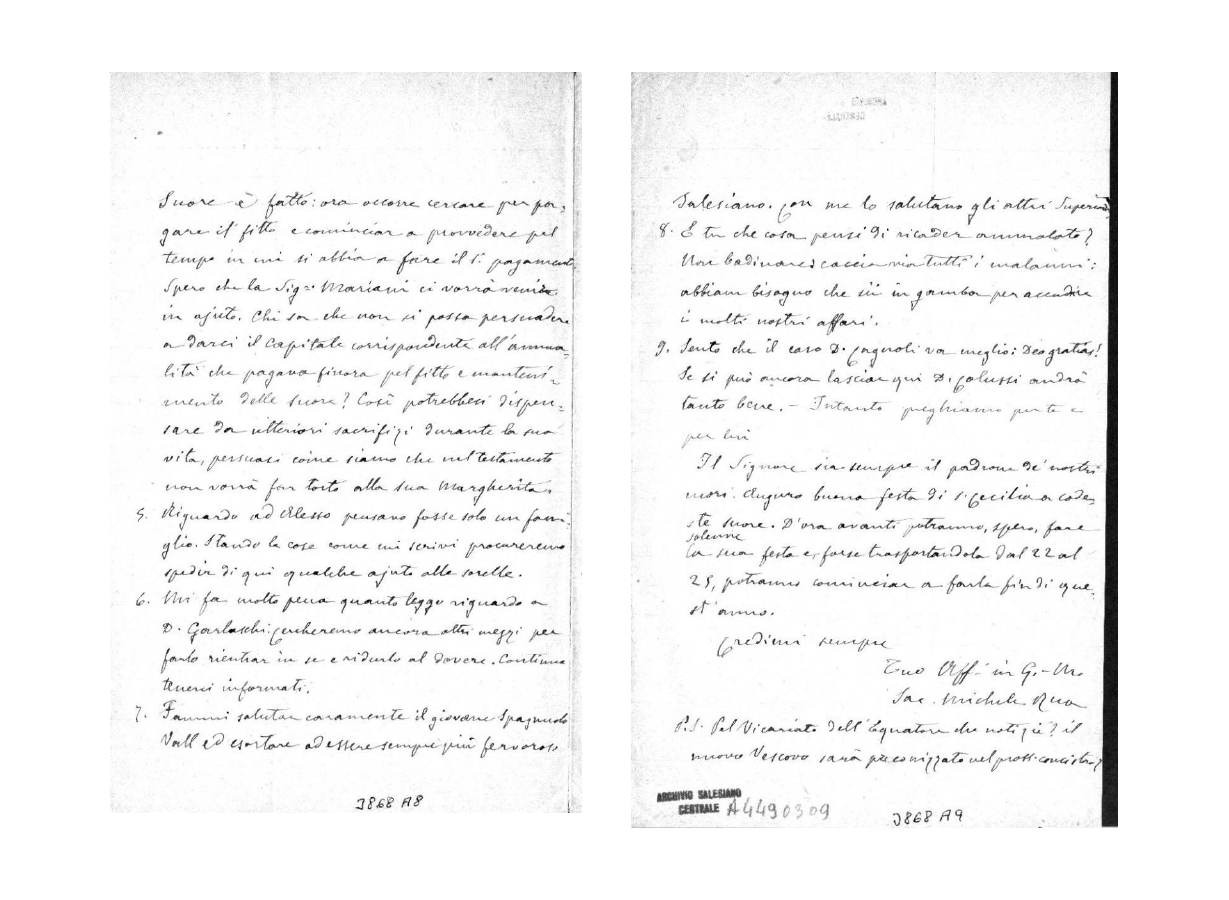 Suore è fatto: ora occorre cercare per pa-
gare il fitto e cominciar a provvedere pel
tempo in cui si abbia a fare il s. pagament
Spero che la Sig.ª Mariani ci vorrà venire
in ajuto. Chi sa che non si possa persuadere
a darci il Capitale corrispondente all'annua-
lità che pagava finora pel fitto e manteni-
mento delle suore? Così potrebbesi dispen-
sare da ulteriori sacrifizi durante la sua
vita, persuasi come siamo che nel testamento
non vorrà far torto alla sua Margherita.
5. Riguardo ad Alesso pensavo fosse solo un fami-
glio. Stando la cose come mi scrivi procureremo
spedir di qui qualche ajuto alle sorelle.
6. Mi fa molto pena quanto leggo riguardo a
D. Garlaschi. Cercheremo ancora altri mezzi per
farlo rientrar in se e ridurlo al dovere. Continua
tenerci informati.
7. Fammi salutar caramente il giovane Spagnuolo
Vall ed esortare ad essere sempre più fervoroso
J868 A8
Salesiano. Con me lo salutano gli altri Superiori
8. E tu che cosa pensi di ricader ammalato?
Non badinare: caccia via tutti i malanni:
abbiam bisogno che sii in gamba per accudire
i molti nostri affari.
9. Sento che il caso D. Cagnoli va meglio: Deo gratias!
Se si può ancora lasciar qui D. Colussi andrà
tanto bene. - Intanto preghiamo per te e
per lui
Il Signore sia sempre il padrone de' nostri
cuori. Auguro buona festa di S. Cecilia a code-
ste suore. D'ora avanti potranno, spero, fare
solenne
la sua festa e, forse trasportandola dal 22 al
25, potranno cominciar a farla fin di que-
st'anno.
Credimi sempre
Tuo Aff. in G. M.
Sac. Michele Rua
P.S. Pel Vicariato dell'Equatore che notizie? il
nuovo Vescovo sarà preconizzato nel pross. concistoro?
ARCHIVIO SALESIANO
CENTRALE A4490309
J868 A9